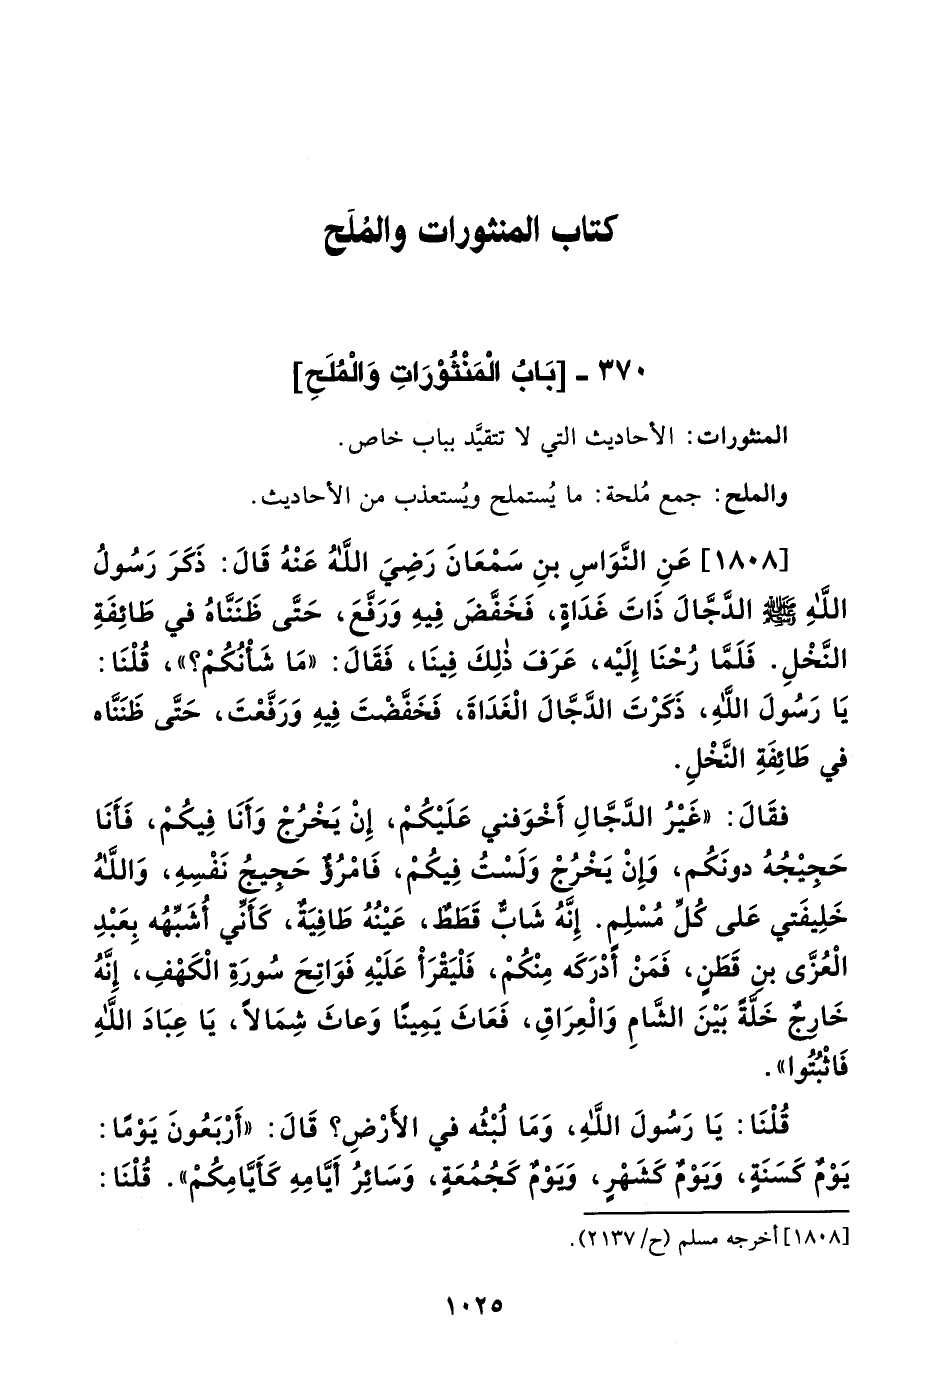 كتاب المنثورات والمُلَح
٣٧٠ - [بَابُ الْمَنْثُوْرَاتِ وَالْمُلَحِ]
المنثورات: الأحاديث التي لا تتقيَّد بباب خاص.
والملح: جمع مُلحة: ما يُستملح ويُستعذب من الأحاديث.
[١٨٠٨] عَنِ النَّوَاسِ بنِ سَمْعَانَ رَضِيَ اللَّهُ عَنْهُ قَالَ: ذَكَرَ رَسُولُ
اللَّهِ ﷺ الدَّجَّالَ ذَاتَ غَدَاةٍ، فَخَفَّضَ فِيهِ وَرَفَّعَ، حَتَّى ظَنَنَّاهُ في طَائِفَةِ
النَّخْلِ. فَلَمَّا رُحْنَا إِلَيْه، عَرَفَ ذٰلِكَ فِينَا، فَقَالَ: «مَا شَأْنُكُمْ؟»، قُلْنَا:
يَا رَسُولَ اللَّهِ، ذَكَرْتَ الدَّجَّالَ الْغَدَاةَ، فَخَفَّضْتَ فِيهِ وَرَفَّعْتَ، حَتَّى ظَنَنَّاه
في طَائِفَةِ النَّخْلِ.
فقَالَ: «غَيْرُ الدَّجَّالِ أَخْوَفني عَلَيْكُمْ، إِنْ يَخْرُجْ وَأَنَا فِيكُمْ، فَأَنَا
حَجِيْجُهُ دونَكُم، وَإِنْ يَخْرُجْ وَلَسْتُ فِيكُمْ، فَامْرُؤٌ حَجِيجُ نَفْسِهِ، وَاللَّهُ
خَلِيفَتي عَلى كُلِّ مُسْلِمٍ. إِنَّهُ شَابٌّ قَطَطٌ، عَيْنُهُ طَافِيَةٌ، كَأَنِّي أُشَبِّهُه بِعَبْدِ
الْعُزَّى بنِ قَطَنٍ، فَمَنْ أَدْرَكَه مِنْكُمْ، فَلْيَقْرَأْ عَلَيْهِ فَوَاتِحَ سُورَةِ الْكَهْفِ، إِنَّهُ
خَارِجٌ خَلَّةً بَيْنَ الشَّامِ وَالْعِرَاقِ، فَعَاثَ يَمِينًا وَعاثَ شِمَالاً، يَا عِبَادَ اللَّهِ
فَاثْبُتُوا».
قُلْنَا: يَا رَسُولَ اللَّهِ، وَمَا لُبْثُه في الأَرْضِ؟ قَالَ: «أَرْبَعُونَ يَوْمًا:
يَوْمٌ كَسَنَةٍ، وَيَوْمٌ كَشَهْرٍ، وَيَوْمٌ كَجُمُعَةٍ، وَسَائِرُ أَيَّامِهِ كَأَيَّامِكُمْ». قُلْنَا:
[١٨٠٨] أخرجه مسلم (ح/ ٢١٣٧).
١٠٢٥